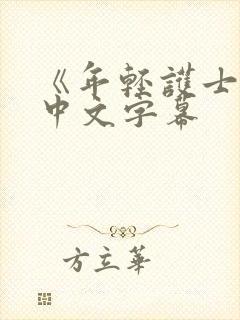 《年轻護士
中文字幕
方立華